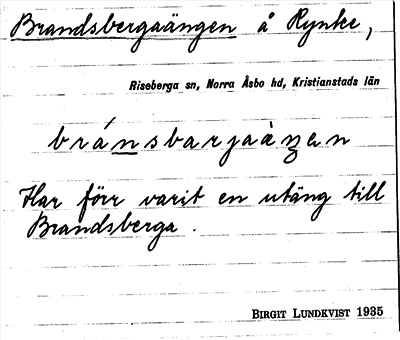 Brandsbergaängen å Rynke,
Riseberga sn, Norra Åsbo hd, Kristianstads län
bránsbarjaàŋen
Har förr varit en utäng till
Brandsberga.
BIRGIT LUNDKVIST 1935